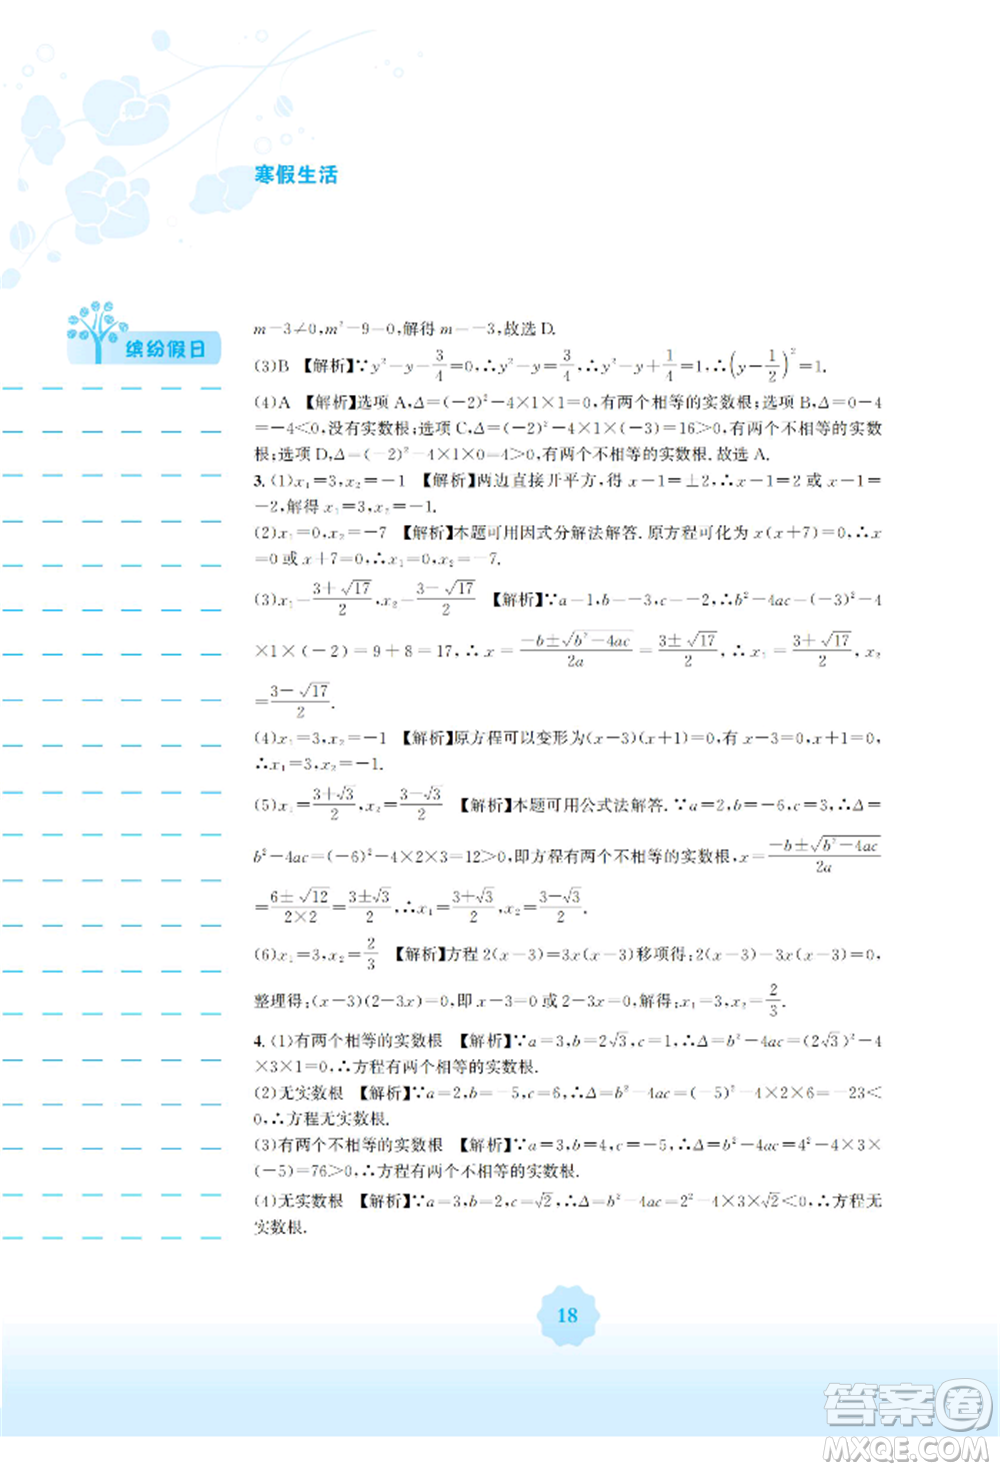 寒假生活
缤纷假日
m－3≠0,m²－9＝0,解得 m＝－3,故选 D.
(3)B 【解析】∵y²－y－3/4＝0,∴y²－y＝3/4,∴y²－y＋1/4＝3/4＋1/4＝1,∴(y－1/2)²＝1.
(4)A 【解析】选项 A,Δ＝(－2)²－4×1×1＝0,有两个相等的实数根;选项 B,Δ＝0－4
＝－4＜0,没有实数根;选项 C,Δ＝(－2)²－4×1×(－3)＝16＞0,有两个不相等的实数
根;选项 D,Δ＝(－2)²－4×1×0＝4＞0,有两个不相等的实数根.故选 A.
3. (1)x₁＝3,x₂＝－1 【解析】两边直接开平方,得 x－1＝±2,∴x－1＝2 或 x－1＝
－2,解得 x₁＝3,x₂＝－1.
(2)x₁＝0,x₂＝－7 【解析】本题可用因式分解法解答.原方程可化为 x(x＋7)＝0,∴x
＝0 或 x＋7＝0,∴x₁＝0,x₂＝－7.
(3)x₁＝(3＋√17)/2,x₂＝(3－√17)/2 【解析】∵a＝1,b＝－3,c＝－2,∴b²－4ac＝(－3)²－4
×1×(－2)＝9＋8＝17,∴x＝(－b±√(b²－4ac))/2a＝(3±√17)/2,∴x₁＝(3＋√17)/2,x₂
＝(3－√17)/2.
(4)x₁＝3,x₂＝－1 【解析】原方程可以变形为(x－3)(x＋1)＝0,有 x－3＝0,x＋1＝0,
∴x₁＝3,x₂＝－1.
(5)x₁＝(3＋√3)/2,x₂＝(3－√3)/2 【解析】本题可用公式法解答.∵a＝2,b＝－6,c＝3,∴Δ＝
b²－4ac＝(－6)²－4×2×3＝12＞0,即方程有两个不相等的实数根,x＝(－b±√(b²－4ac))/2a
＝(6±√12)/(2×2)＝(3±√3)/2,∴x₁＝(3＋√3)/2,x₂＝(3－√3)/2.
(6)x₁＝3,x₂＝2/3 【解析】方程 2(x－3)＝3x(x－3)移项得:2(x－3)－3x(x－3)＝0,
整理得:(x－3)(2－3x)＝0,即 x－3＝0 或 2－3x＝0,解得:x₁＝3,x₂＝2/3.
4. (1)有两个相等的实数根 【解析】∵a＝3,b＝2√3,c＝1,∴Δ＝b²－4ac＝(2√3)²－4
×3×1＝0,∴方程有两个相等的实数根.
(2)无实数根 【解析】∵a＝2,b＝－5,c＝6,∴Δ＝b²－4ac＝(－5)²－4×2×6＝－23＜
0,∴方程无实数根.
(3)有两个不相等的实数根 【解析】∵a＝3,b＝4,c＝－5,∴Δ＝b²－4ac＝4²－4×3×
(－5)＝76＞0,∴方程有两个不相等的实数根.
(4)无实数根 【解析】∵a＝3,b＝2,c＝√2,∴Δ＝b²－4ac＝2²－4×3×√2＜0,∴方程无
实数根.
18
答案卷
MXQE.COM